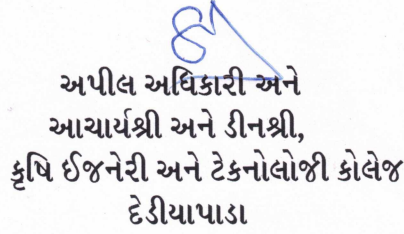 અપીલ અધિકારી અને
આચાર્યશ્રી અને ડીનશ્રી,
કૃષિ ઈજનેરી અને ટેકનોલોજી કોલેજ
દેડીયાપાડા